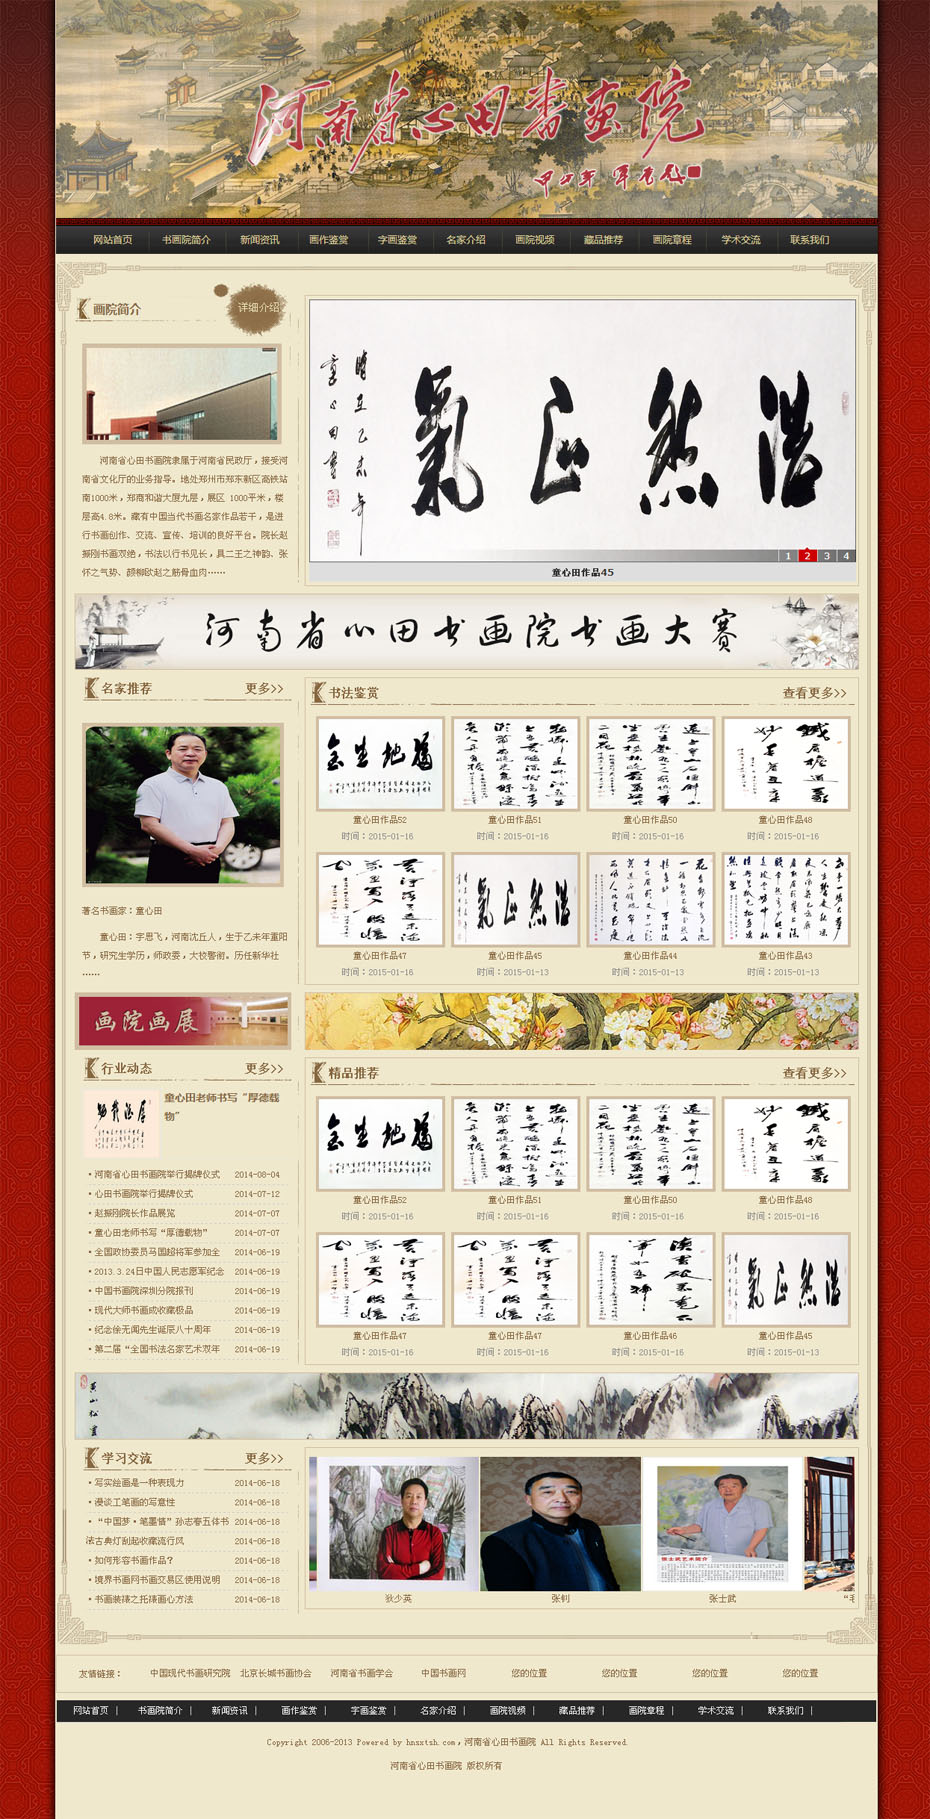 河南省心田书画院
网站首页 书画院简介 新闻资讯 画作鉴赏 字画鉴赏 名家介绍 画院视频 藏品推荐 画院章程 学术交流 联系我们
画院简介
详细介绍
河南省心田书画院隶属于河南省民政厅，接受河
南省文化厅的业务指导。地处郑州市郑东新区高铁站
南1000米，郑商和谐大厦九层，展区 1000平米，楼
层高4.8米。藏有中国当代书画名家作品若干，是进
行书画创作、交流、宣传、培训的良好平台。院长赵
振刚书画双绝，书法以行书见长，具二王之神韵、张
怀之气势、颜柳欧赵之筋骨血肉……
浩然正氣
1 2 3 4
童心田作品45
河南省心田书画院书画大赛
名家推荐 更多>>
著名书画家：童心田
童心田：字思飞，河南沈丘人，生于乙未年重阳
节，研究生学历，师政委，大校警衔。历任新华社
……
书法鉴赏 查看更多>>
童心田作品52 童心田作品51 童心田作品50 童心田作品48
时间：2015-01-16 时间：2015-01-16 时间：2015-01-16 时间：2015-01-16
童心田作品47 童心田作品45 童心田作品44 童心田作品43
时间：2015-01-16 时间：2015-01-13 时间：2015-01-13 时间：2015-01-13
画院画展
行业动态 更多>>
童心田老师书写“厚德载
物”
河南省心田书画院举行揭牌仪式 2014-08-04
心田书画院举行揭牌仪式 2014-07-12
赵振刚院长作品展览 2014-07-07
童心田老师书写“厚德载物” 2014-07-07
全国政协委员马国超将军参加全 2014-06-19
2013.3.24日中国人民志愿军纪念 2014-06-19
中国书画院深圳分院报刊 2014-06-19
现代大师书画成收藏极品 2014-06-19
纪念徐无闻先生诞辰八十周年 2014-06-19
第二届“全国书法名家艺术双年 2014-06-19
精品推荐 查看更多>>
童心田作品52 童心田作品51 童心田作品50 童心田作品48
时间：2015-01-16 时间：2015-01-16 时间：2015-01-16 时间：2015-01-16
童心田作品47 童心田作品47 童心田作品46 童心田作品45
时间：2015-01-16 时间：2015-01-16 时间：2015-01-16 时间：2015-01-13
学习交流 更多>>
写实绘画是一种表现力 2014-06-18
漫谈工笔画的写意性 2014-06-18
“中国梦·笔墨情”孙志春五体书 2014-06-18
法古典灯刮起收藏流行风 2014-06-18
如何形容书画作品？ 2014-06-18
境界书画网书画交易区使用说明 2014-06-18
书画装裱之托裱画心方法 2014-06-18
狄少英 张钊 张士武
友情链接： 中国现代书画研究院 北京长城书画协会 河南省书画学会 中国书画网 您的位置 您的位置 您的位置 您的位置
网站首页 | 书画院简介 | 新闻资讯 | 画作鉴赏 | 字画鉴赏 | 名家介绍 | 画院视频 | 藏品推荐 | 画院章程 | 学术交流 | 联系我们 |
Copyright 2006-2013 Powered by hnsxtsh.com，河南省心田书画院 All Rights Reserved.
河南省心田书画院 版权所有